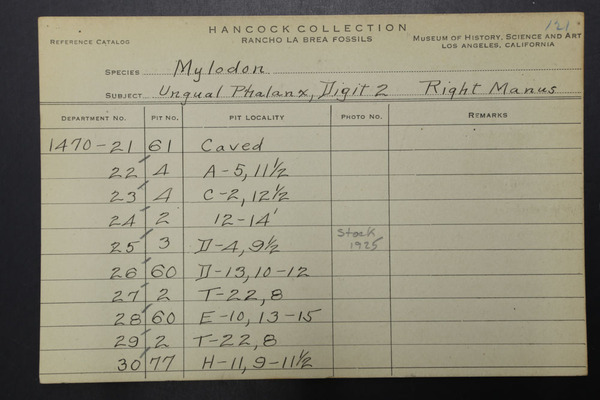 121
HANCOCK COLLECTION
REFERENCE CATALOG RANCHO LA BREA FOSSILS MUSEUM OF HISTORY, SCIENCE AND ART
LOS ANGELES, CALIFORNIA
SPECIES Mylodon
SUBJECT Ungual Phalanx, Digit 2 Right Manus
DEPARTMENT NO. PIT NO. PIT LOCALITY PHOTO NO. REMARKS
1470-21 61 Caved
22 4 A-5, 11½
23 4 C-2, 12½
24 2 12-14'
25 3 D-4, 9½ Stock 1925
26 60 D-13, 10-12
27 2 T-22, 8
28 60 E-10, 13-15
29 2 T-22, 8
30 77 H-11, 9-11½